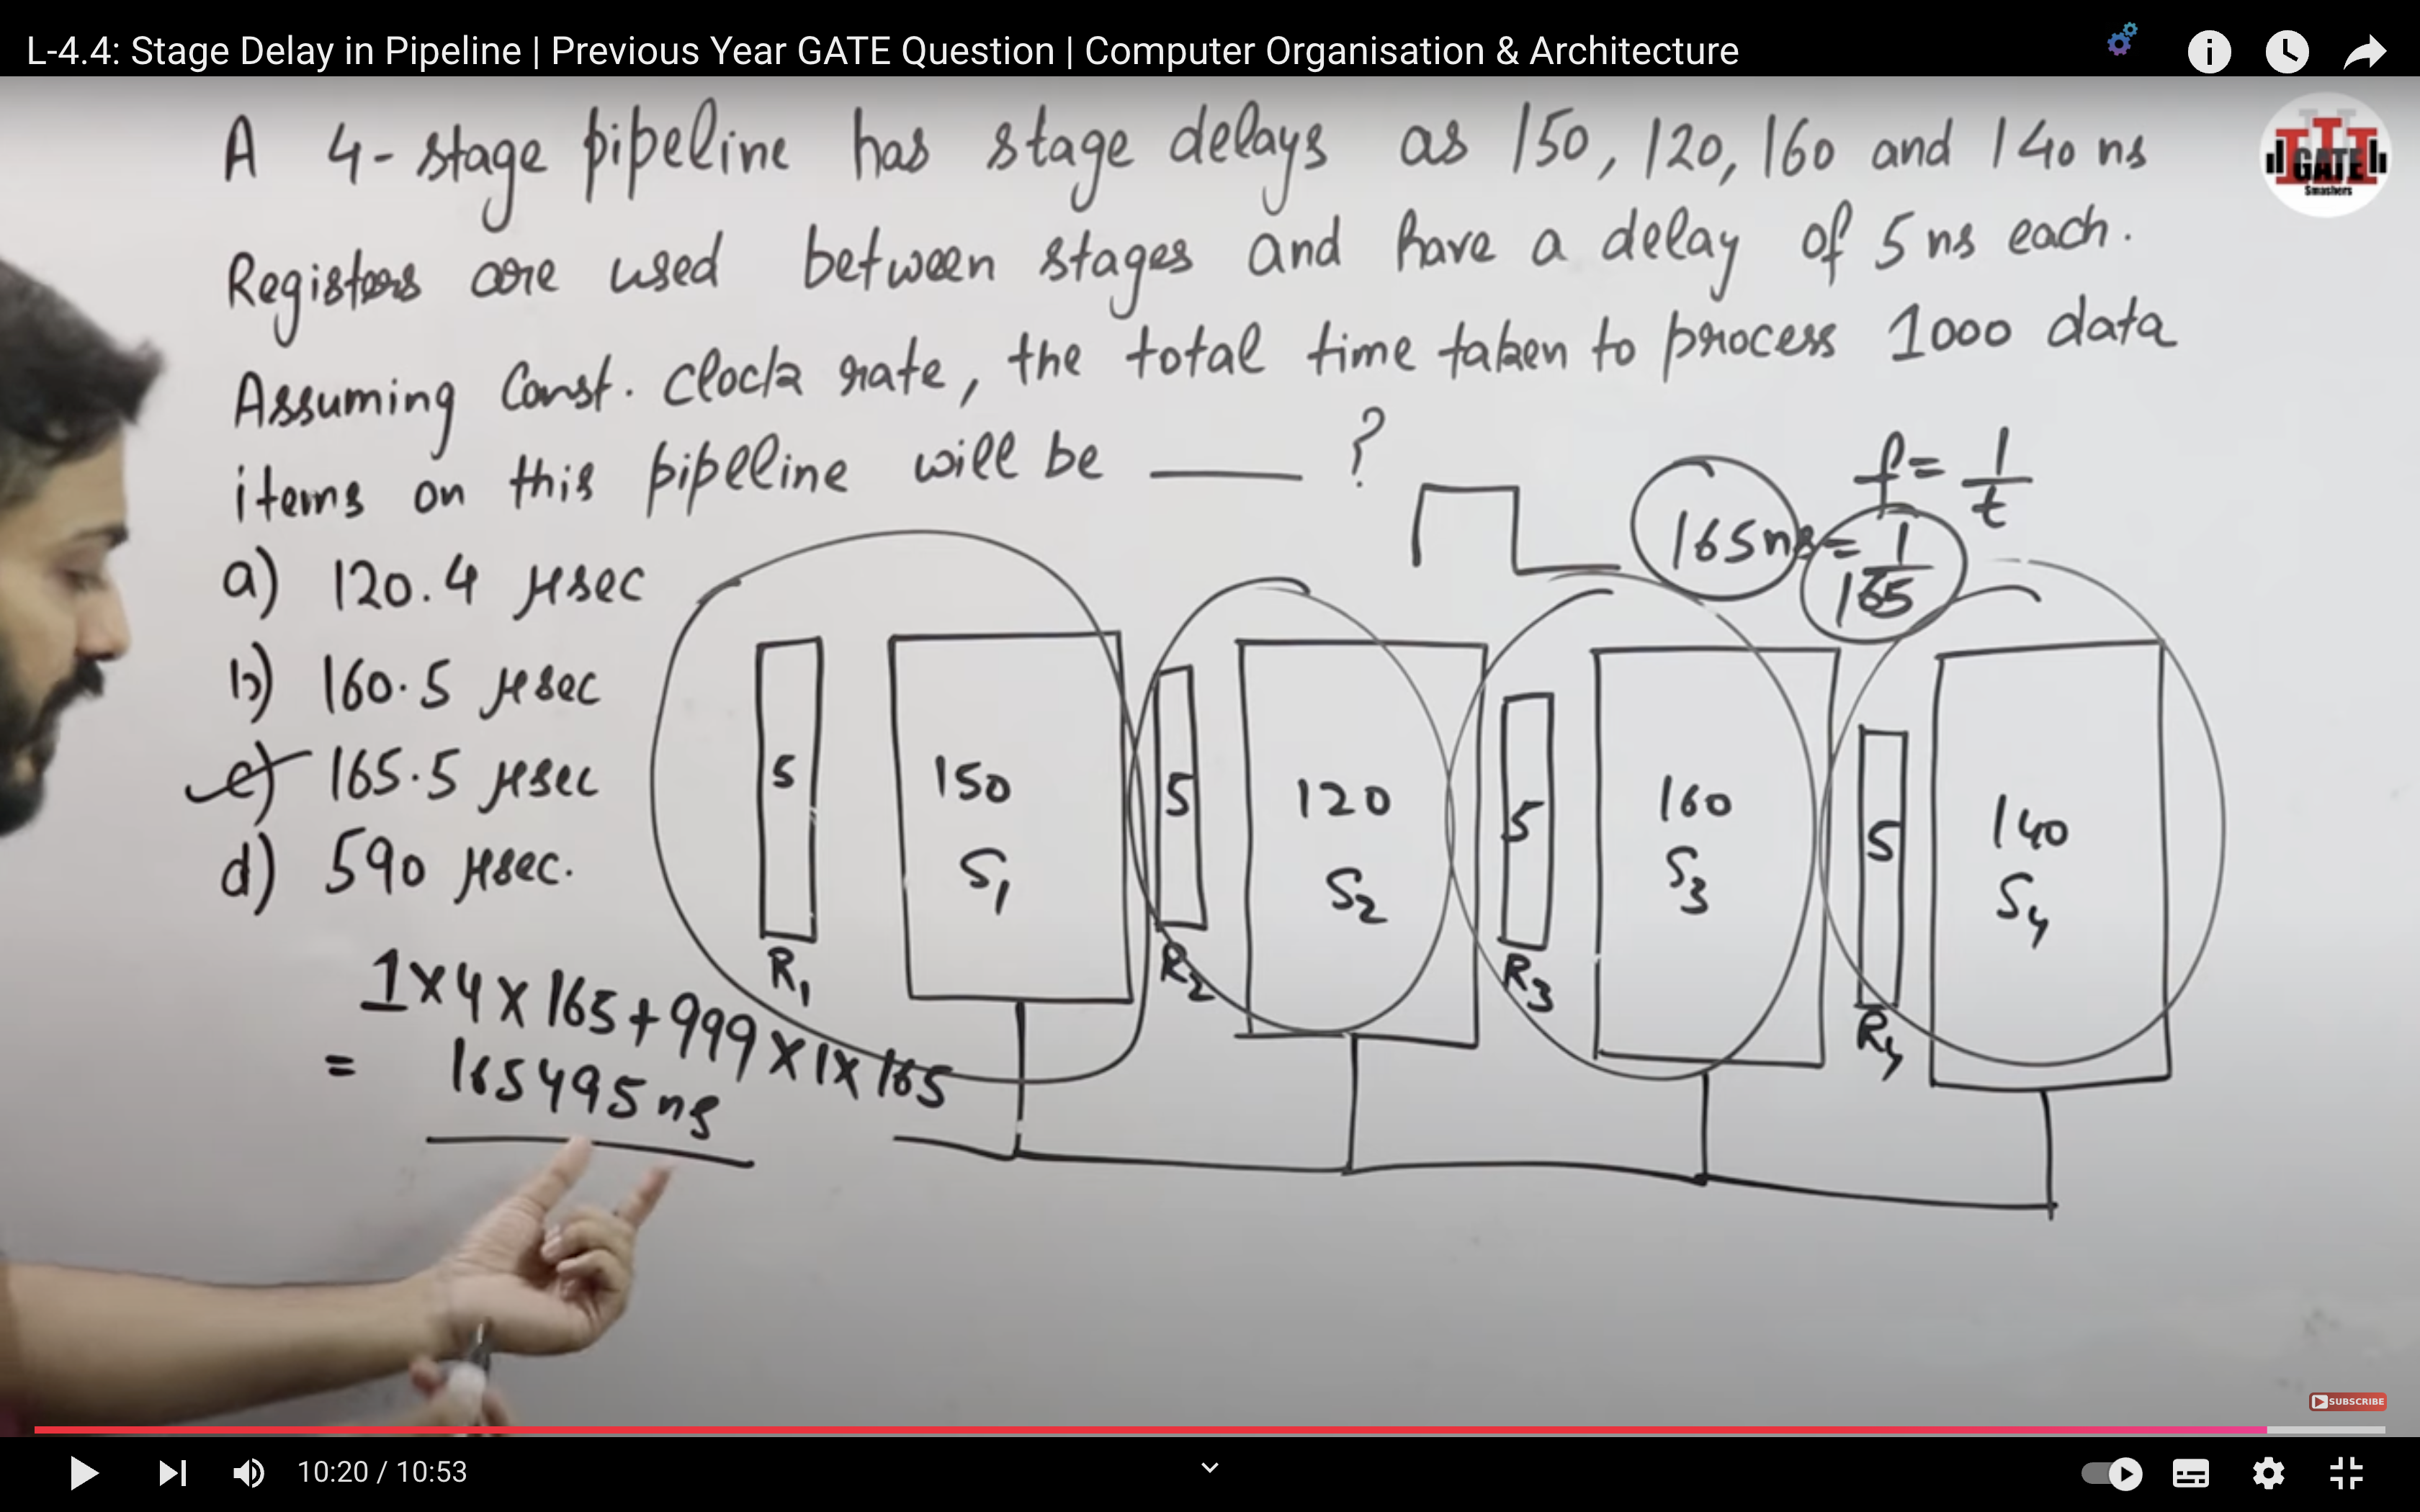 L-4.4: Stage Delay in Pipeline | Previous Year GATE Question | Computer Organisation & Architecture
A 4-stage pipeline has stage delays as 150, 120, 160 and 140 ns
GATE
Smashers
Registers are used between stages and have a delay of 5 ns each.
Assuming Const. clock rate, the total time taken to process 1000 data
items on this pipeline will be ____ ?
f = 1/t
165 ns = 1/165
a) 120.4 μsec
b) 160.5 μsec
c) 165.5 μsec
d) 590 μsec.
5
R1
150
S1
5
R2
120
S2
5
R3
160
S3
5
R4
140
S4
1 x 4 x 165 + 999 x 1 x 165
= 165495 ns
SUBSCRIBE
10:20 / 10:53